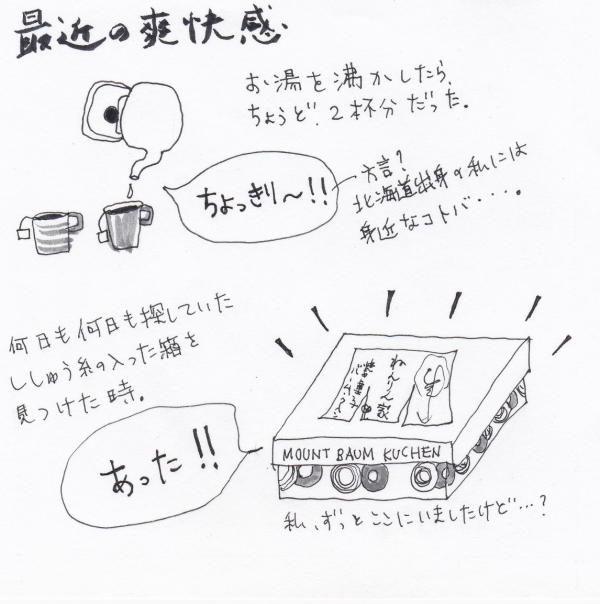 最近の爽快感
お湯を沸かしたら、
ちょうど、2杯分だった。
ちょっきり〜!!
方言?
北海道出身の私には
身近なコトバ・・・。
何日も何日も探していた
ししゅう糸の入った箱を
見つけた時。
あった!!
ねんりん家
MOUNT BAUM KUCHEN
私、ずっとここにいましたけど…?